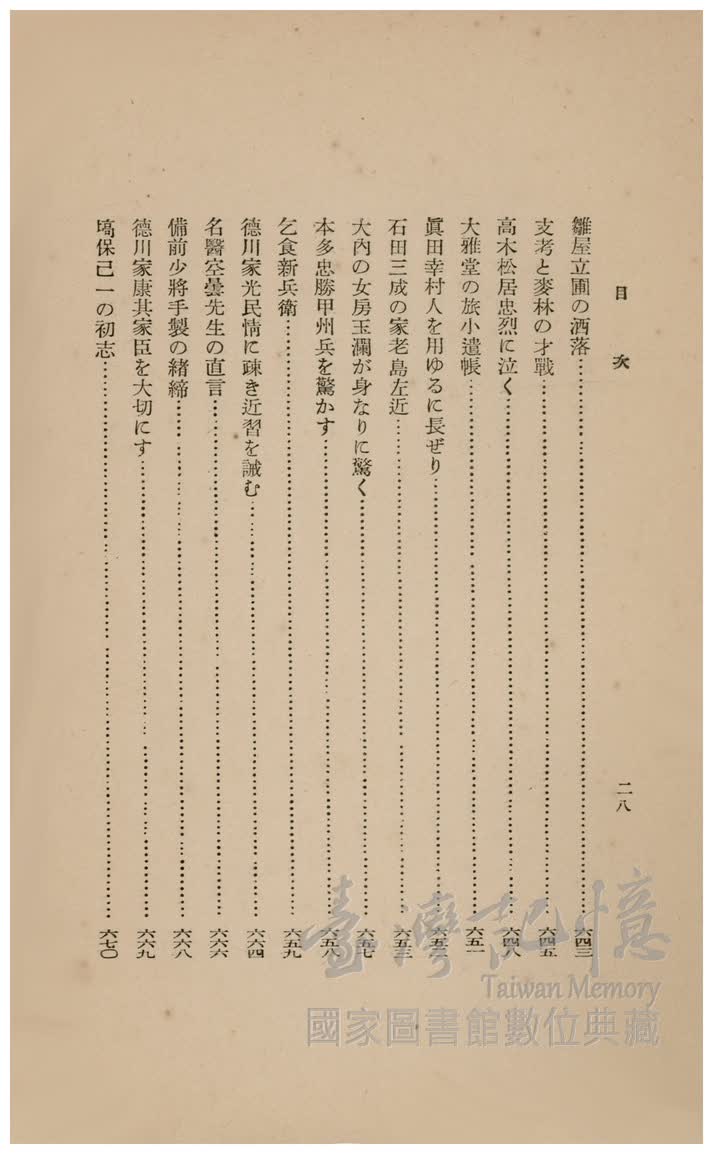 目次 二八
雛屋立圃の洒落 六四三
支考と麥林の才戰 六四五
高木松居忠烈に泣く 六四八
大雅堂の旅小遣帳 六五一
眞田幸村人を用ゆるに長ぜり 六五二
石田三成の家老島左近 六五三
大內の女房玉瀾が身なりに驚く 六五七
本多忠勝甲州兵を驚かす 六五八
乞食新兵衛 六五九
德川家光民情に疎き近習を誡む 六六四
名醫空曇先生の直言 六六六
備前少將手製の緒締 六六八
德川家康其家臣を大切にす 六六九
塙保己一の初志 六七〇
臺灣記憶
Taiwan Memory
國家圖書館數位典藏